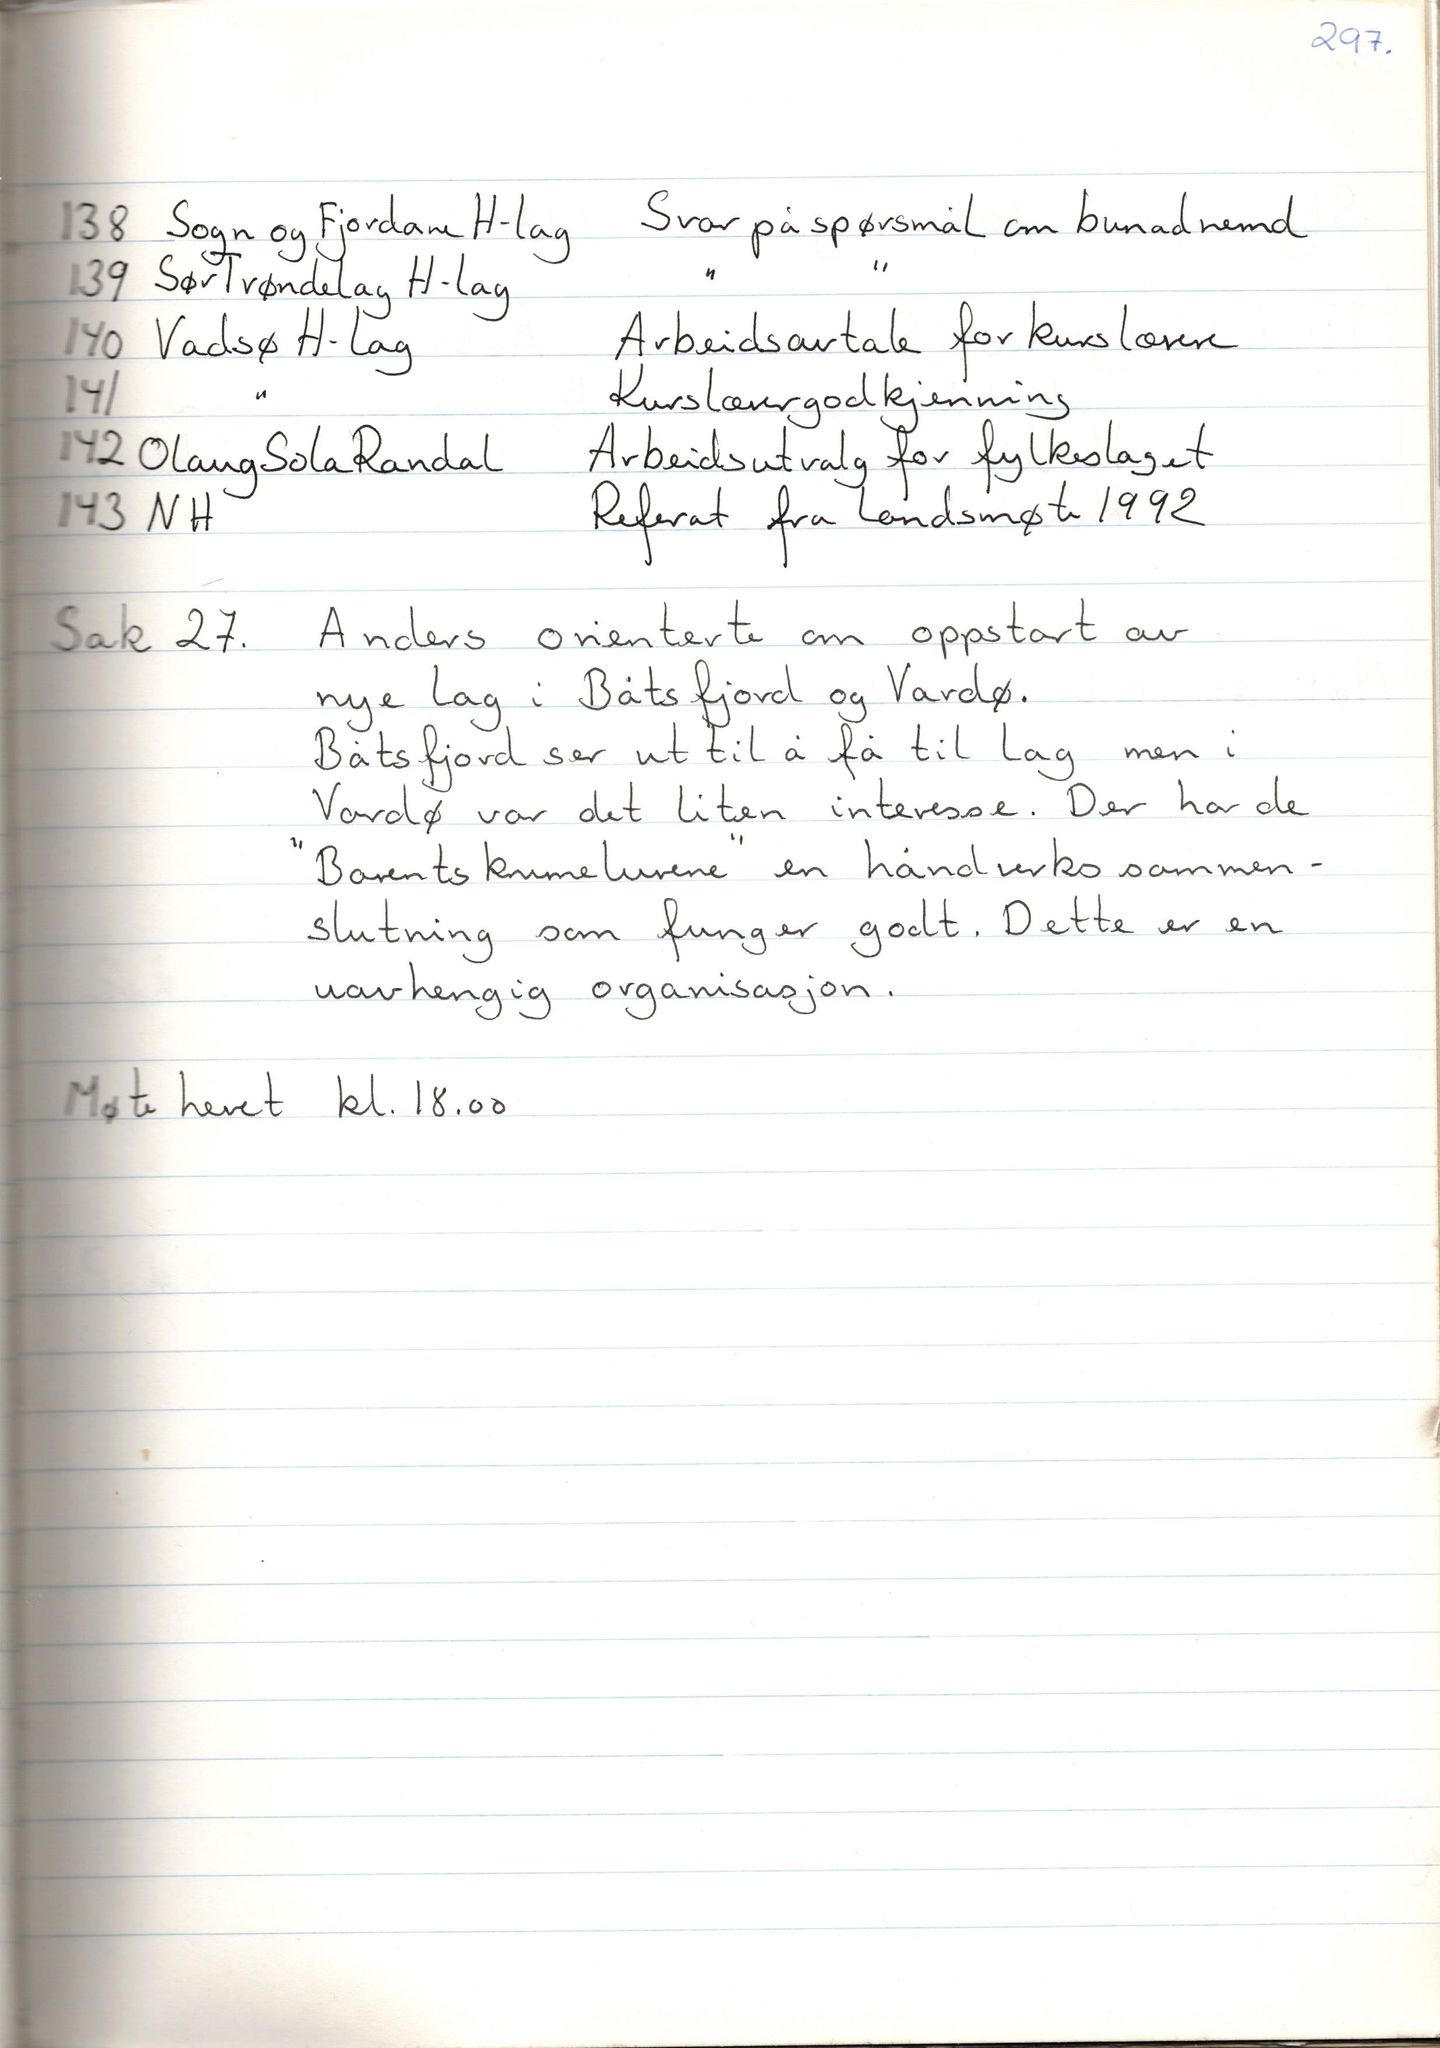 297.
138 Sogn og Fjordane H-lag Svar på spørsmål om bunadnemd
139 Sør Trøndelag H-lag " "
140 Vadsø H-lag Arbeidsavtale for kurslærere
141 " Kurslærergodkjenning
142 Olaug Sola Randal Arbeidsutvalg for fylkeslaget
143 NH Referat fra Landsmøte 1992
Sak 27. Anders orienterte om oppstart av
nye lag i Båtsfjord og Vardø.
Båtsfjord ser ut til å få til lag men i
Vardø var det liten interesse. Der har de
"Barentskrumelurene" en håndverkssammen-
slutning som funger godt. Dette er en
uavhengig organisasjon.
Møte hevet kl. 18.00